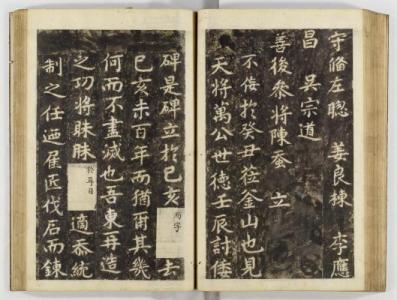 守備左聦 姜良棟 李應
昌 吳宗道
善後參將陳蚕 立
不佞於癸丑莅金山也見
天將萬公世德壬辰討倭
碑是碑立於己亥 去
己亥未百年而猶爾其幾
何而不盡滅也吾東再造
之功將昧昧 於耳目 適忝統
制之任迺雇匠伐石而鍊